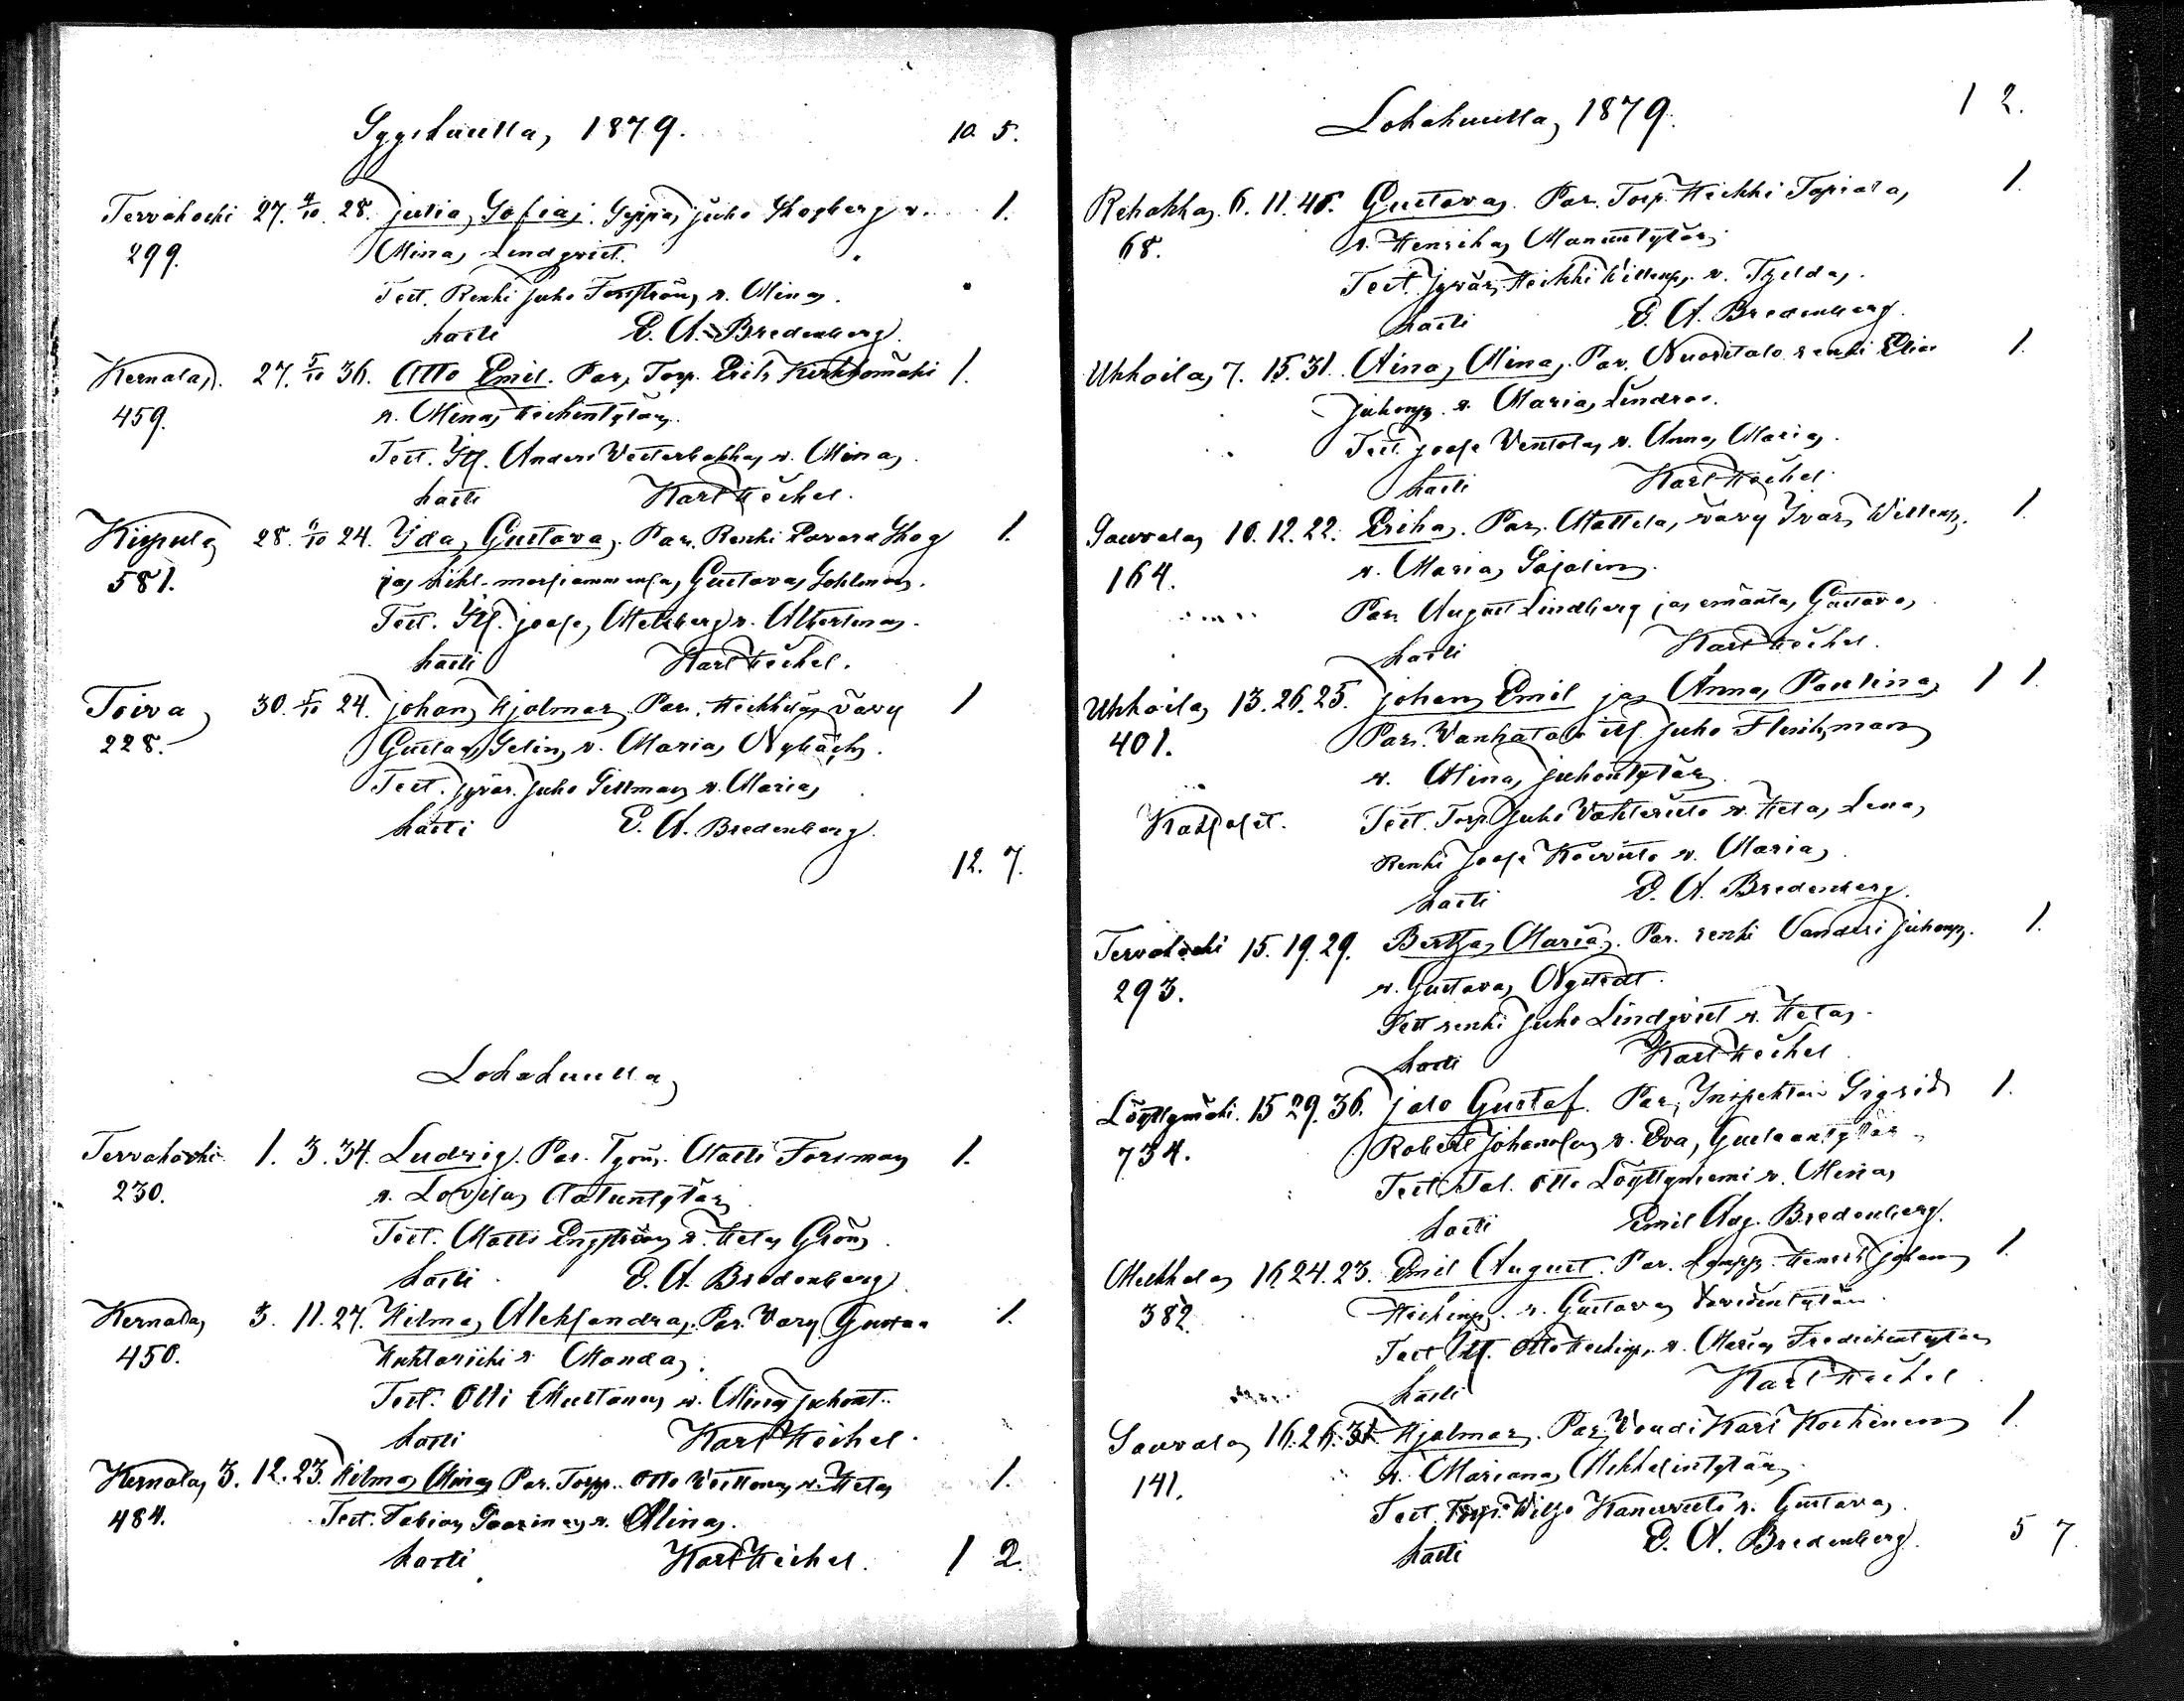 Syyskuulla, 1879. 10. 5.
Tervakoski 27. 4/10. 28. Julia, Sofia. Seppä, Juho Skogberg v. 1.
299. Mina, Lindqvist.
Test. Renki Juho Forsström, v. Mina.
kasti E. A. Bredenberg.
Kernala, 27. 5/10 36. Otto Emil. Par, Torp. Erik Kirkkomäki 1.
459. v. Mina, Heikintytär.
Test. Itl. Anders Vesterbakka, v. Mina,
kasti Karl Heikel.
Kiipula 28. 9/10 24. Yda, Gustava, Par. Renki Edvard Skog 1.
581. ja kihl. morsiammensa, Gustava,
Test. Itl. Joose, v. Albertina.
kasti Karl Heikel.
Toiva, 30. 5/10 24. Johan, Hjalmar, Par. Heikkilän vävy 1
228. Gustaa, Selin, v. Maria,
Test. Jyvär. Juho Sillman, v. Maria,
kasti E. A. Bredenberg.
12. 7.
Lokakuulla,
Tervakoski 1. 3. 34. Ludvig. Par. Työm. Matti Forsman 1.
230. v. Lovisa, Aatuntytär
Test. Matts Engström, v. Heta, Grön,
kasti E. A. Bredenberg
Kernala, 3. 11. 27. Hilma, Aleksandra, Par. Vävy Gustaa 1.
450. v. Manda,
Test. Olli Mustonen, v. Mina, Juhont.
kasti Karl Heikel.
Kernala, 3. 12. 23. Hilma, Mina, Par. Torpp. Otto v. Heta, 1.
484. Test. Fabian v. Alina,
kasti Karl Heikel. 1 2.
Lokakuulla, 1879. 1 2.
Rehakka, 6. 11. 40. Gustava, Par. Torp. Heikki Tapiala, 1.
68. v. Henrika, Manuntytär,
Test. Jyvär. Heikki Villenp. v. Helda,
kasti E. A. Bredenberg.
Uhkoila, 7. 15. 31. Aina, Mina, Par. Nuoritalo renki Elias 1.
Juhonp. v. Maria, Lindroos.
Test. Joose Ventola, v. Anna, Maria.
kasti Karl Heikel.
Sauvala, 10. 12. 22. Erika, Par. Mattila, vävy Ivar, Villenp. 1.
164. v. Maria, Sjölin,
Par. August Lindberg ja emäntä, Gustava,
kasti Karl Heikel.
Uhkoila, 13. 26. 25. Johan, Emil ja Anna, Paulina, 1 1.
401. Par. Vanhatalo itl. Juho
v. Mina, Juhontytär
Kaksoset. Test. Torp. Juho v. Heta, Lena,
Renki Joose Koivisto v. Maria,
kasti E. A. Bredenberg.
Tervakoski 15. 19. 29. Berta, Maria, Par. renki Vanderi Juhonp. 1.
293. v. Gustava, Nystedt.
Test renki Juho Lindqvist v. Heta,
kasti Karl Heikel
Löyttymäki. 15 29. 36. Jalo Gustaf. Par, Inspehtori Sigrid 1.
734. Robert Johansson, v. Eva, Gustaantytär
Test. Tal. Otto Löyttyniemi v. Mina,
kasti Emil Aug. Bredenberg.
Mekkala, 16 24. 23. Emil August. Par. Lampp. Henrik Johan, 1.
382. Heikinp. v. Gustava, Davidintytär
Test Itl. Otto Heikinp. v. Maria, Fredrikintytär,
kasti Karl Heikel
Sauvala, 16. 26. 31. Hjalmar, Par, Voudi Karl Koskinen, 1.
141. v. Mariana, Mikkelintytär,
Test. Torp. Viljo Kanervisto v. Gustava,
kasti E. A. Bredenberg. 5 7.